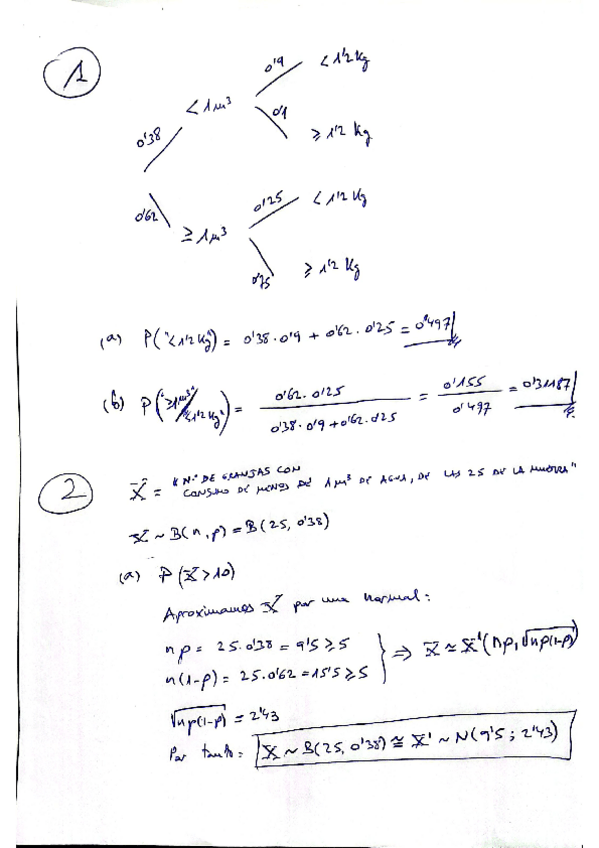 1
0'9 < 1'2 Kg
< 1 m³
0'38 0'1
≥ 1'2 Kg
0'25 < 1'2 Kg
0'62
≥ 1 m³
0'75 ≥ 1'2 Kg
(a) P("< 1'2 Kg") = 0'38 · 0'9 + 0'62 · 0'25 = 0'497
(b) P("≥ 1 m³"/"< 1'2 Kg") = 0'62 · 0'25 / 0'38 · 0'9 + 0'62 · 0'25 = 0'155 / 0'497 = 0'31187
2
X = "Nº DE GRANJAS CON
CONSUMO DE MENOS DE 1 m³ DE AGUA, DE LAS 25 DE LA MUESTRA"
X ~ B(n, p) = B(25, 0'38)
(a) P(X > 10)
Aproximamos X por una normal:
np = 25 · 0'38 = 9'5 ≥ 5
n(1-p) = 25 · 0'62 = 15'5 ≥ 5 } ⇒ X ≈ X'(np, √np(1-p))
√np(1-p) = 2'43
Por tanto: X ~ B(25, 0'38) ≅ X' ~ N(9'5; 2'43)